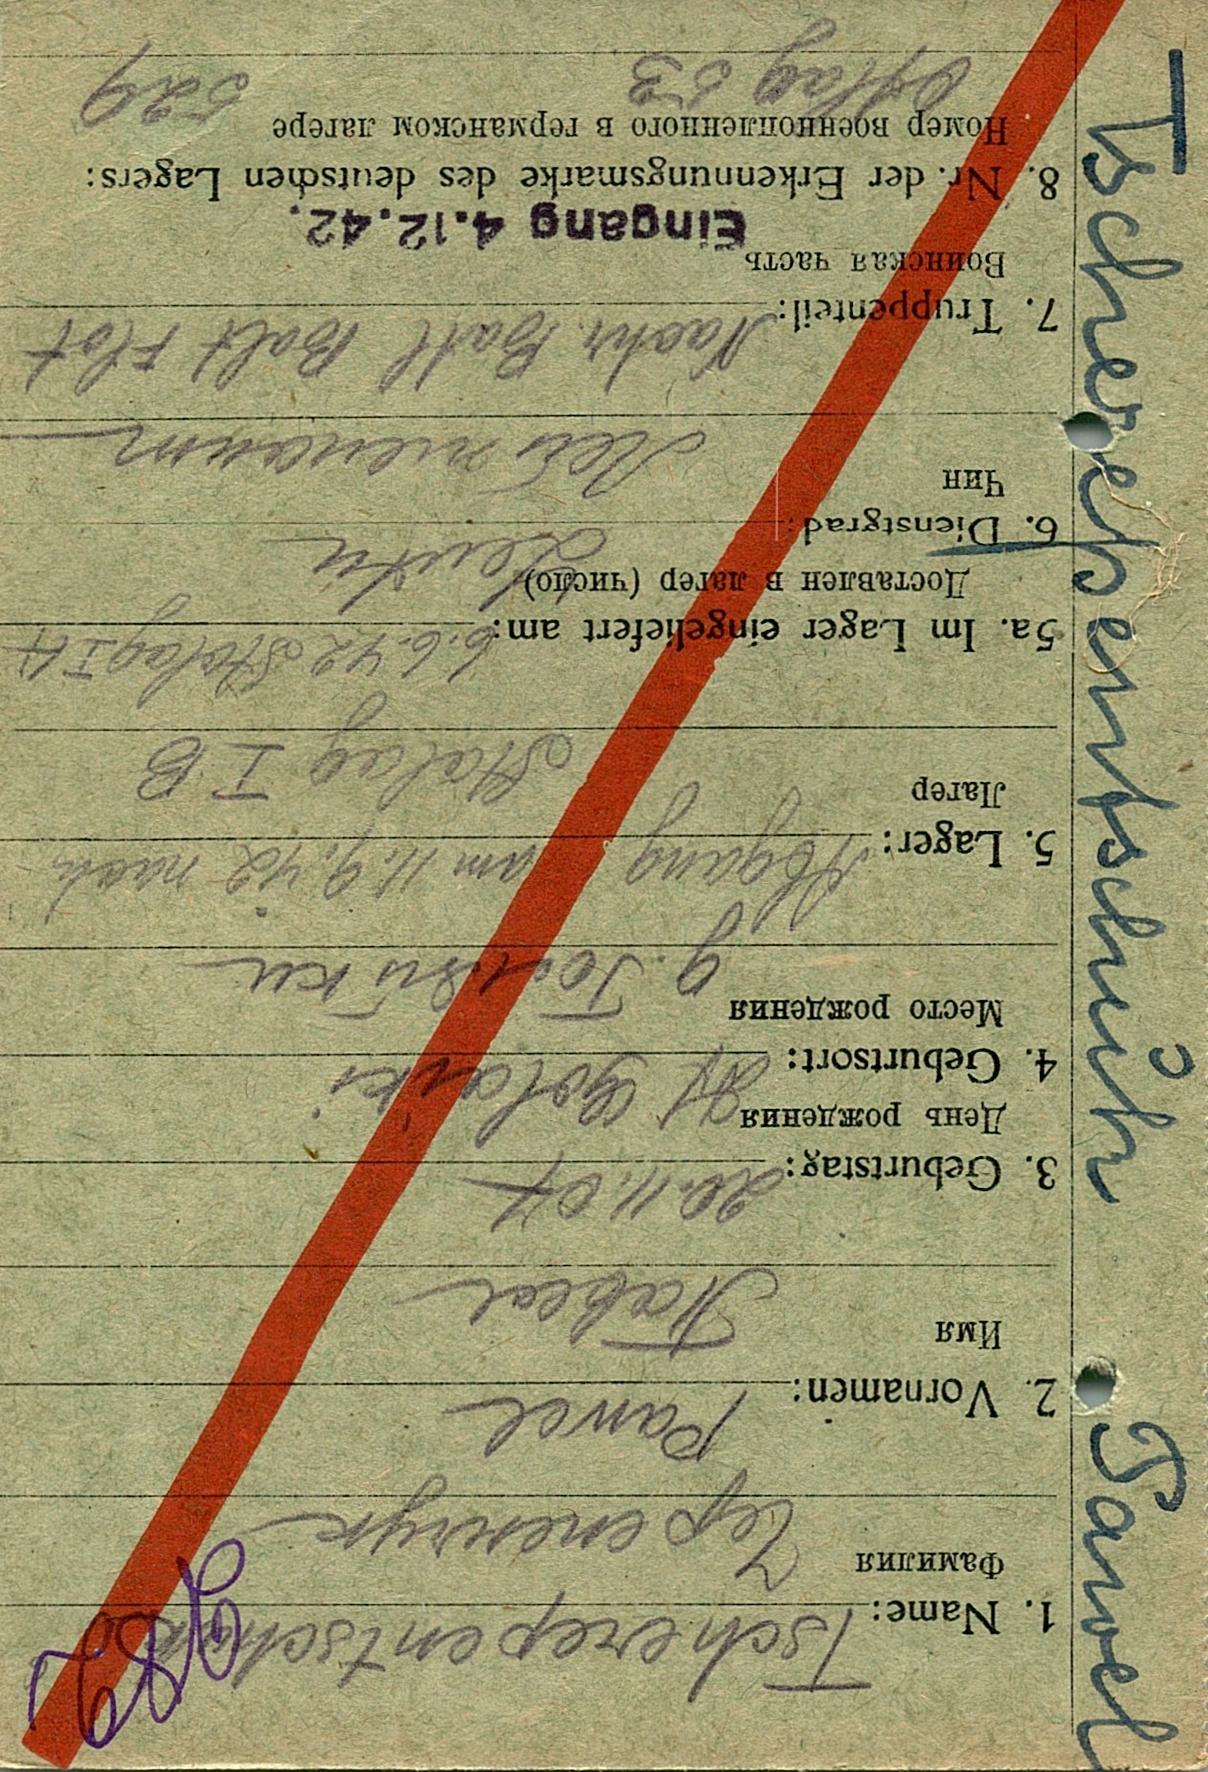 Tscherepentschuk Pawel
1. Name: Tscherepentschuk
Фамилия Черепенчук
2. Vornamen: Pawel
Имя Павел
3. Geburtstag: 20.11.07
День рождения
4. Geburtsort: Df Golaiki
Место рождения
д.
5. Lager: Abgang am 11.9.42 nach
Лагер Stalag I B
5a. Im Lager eingeliefert am: 6.6.42 Stalag I A
Доставлен в лагер (число)
6. Dienstgrad: Leutn
Чин Лейтенант
7. Truppenteil: Nachr. Batl Balt Flot
Воинская часть
Eingang 4.12.42.
8. Nr. der Erkennungsmarke des deutschen Lagers:
Номер военнопленного в германском лагере
Oflag 53 529